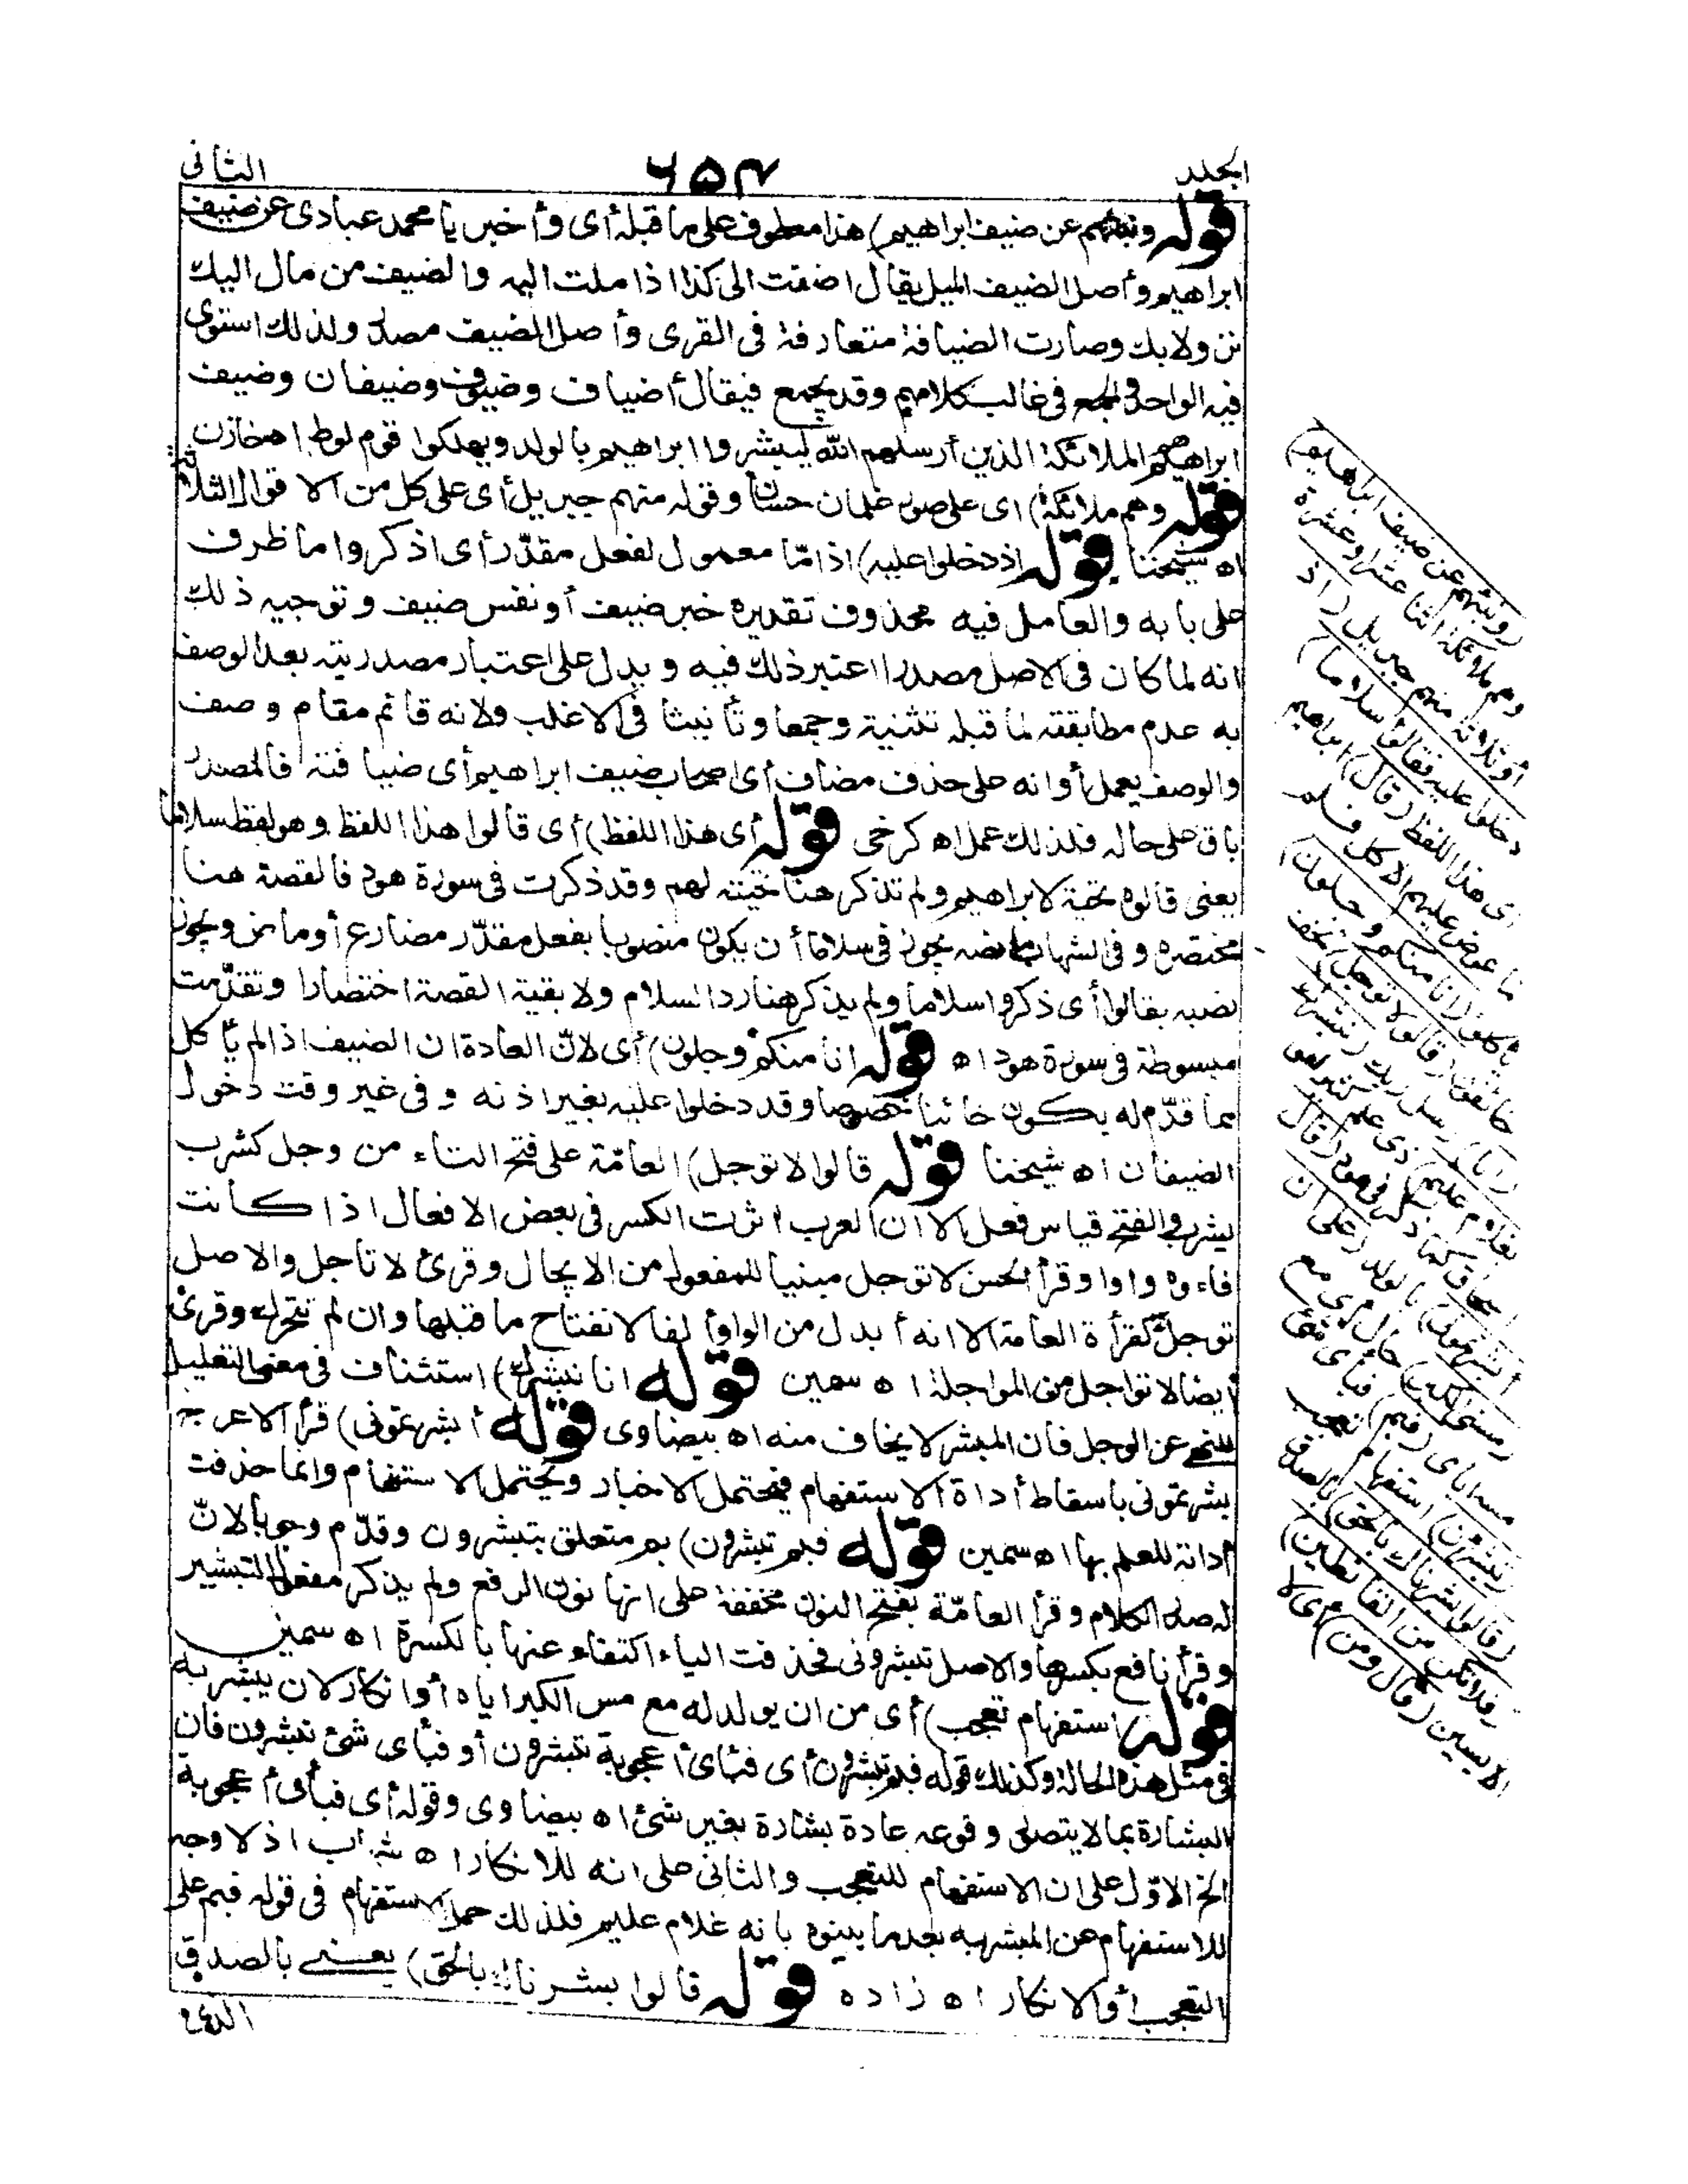 الجلد
٦٥٣
الثانی
قوله ونبئهم عن ضيف ابراهيم) هذا معطوف على ما قبله أى وأخبر يا محمد عبادى عن ضيف
ابراهيم وأصل الضيف الميل يقال اضفت الى كذا اذا ملت اليه والضيف من مال اليك
نزولا بك وصارت الضيافة متعارفة فى القرى وأصل الضيف مصدر ولذلك استوى
فيه الواحد والجمع فى غالب كلامهم وقد يجمع فيقال أضياف وضيوف وضيفان وضيف
ابراهيم هم الملائكة الذين أرسلهم الله ليبشروا ابراهيم بالولد ويهلكوا قوم لوط اه خازن
قوله وهم ملائكة) اى على صور غلمان حسان وقوله منهم جبريل أى على كل من الاقوال الثلاثة
اه شيخنا قوله اذ دخلوا عليه) اذ امّا معمول لفعل مقدّر أى اذكر واما ظرف
على بابه والعامل فيه محذوف تقديره خبر ضيف أو نفس ضيف وتوجيه ذلك
انه لما كان فى الاصل مصدرا اعتبر ذلك فيه ويدل على اعتبار مصدريته بعد الوصف
به عدم مطابقته لما قبله تثنية وجمعا وتأنيثا فى الاغلب ولانه قائم مقام وصف
والوصف يعمل أو انه على حذف مضاف أى اصحاب ضيف ابراهيم أى ضيافته فالمصدر
باق على حاله فلذلك عمل اه كرخى قوله أى هذا اللفظ) أى قالوا هذا اللفظ وهو لفظ سلاما
يعنى قالوه تحية لابراهيم ولم تذكر هنا تحيته لهم وقد ذكرت فى سورة هود فالقصة هنا
مختصرة وفى الشهاب ما نصه يجوز فى سلاما أن يكون منصوبا بفعل مقدّر مضارع أو ماض ويجوز
نصبه بقالوا أى ذكروا سلاما ولم يذكر هنا رد السلام ولا بقية القصة اختصارا وتقدّمت
مبسوطة فى سورة هود اه قوله انا منكم وجلون) أى لانّ العادة ان الضيف اذا لم يأكل
مما قدّم له يكون خائنا خصوصا وقد دخلوا عليه بغير اذنه وفى غير وقت دخول
الضيفان اه شيخنا قوله قالوا لا توجل) العامّة على فتح التاء من وجل كشرب
يشرب والفتح قياس فعل الا ان العرب اثرت الكسر فى بعض الافعال اذا كانت
فاءه واوا وقرأ الحسن لا توجل مبنيا للمفعول من الايجال وقرئ لا تاجل والاصل
توجل كقرأة العامة الا انه أبدل من الواو ألفا لانفتاح ما قبلها وان لم تتحرك وقرئ
أيضا لا تواجل من المواجلة اه سمين قوله انا نبشرك) استئناف فى معنى التعليل
للنهى عن الوجل فان المبشر لا يخاف منه اه بيضاوى قوله أبشرتمونى) قرأ الاعرج
بشرتمونى باسقاط أداة الاستفهام فيحتمل الاخبار ويحتمل الاستفهام وانما حذفت
أداته للعلم بها اه سمين قوله فبم تبشرون) بم متعلق بتبشرون وقدّم وجوبا لانّ
له صدر الكلام وقرأ العامّة بفتح النون مخففة على انها نون الرفع ولم يذكر مفعول التبشير
وقرأ نافع بكسرها والاصل تبشرونى فحذفت الياء اكتفاء عنها بالكسرة اه سمين
قوله استفهام تعجب) أى من ان يولد له مع مس الكبر اياه أو انكار لان يبشر به
فى مثل هذه الحالة وكذلك قوله فبم تبشرون أى فبأى أعجوبة تبشرون أو فبأى شئ تبشرون فان
البشارة بما لا يتصور وقوعه عادة بشارة بغير شئ اه بيضاوى وقوله أى فبأى أعجوبة
الخ الاوّل على ان الاستفهام للتعجب والثانى على انه للانكار اه شهاب اذ لا وجه
للاستفهام عن المبشر به بعد ما بينوه بانه غلام عليم فلذلك حمل الاستفهام فى قوله فبم على
التعجب أو الانكار اه زاده قوله قالوا بشرناك بالحق) يعنى بالصدق
الذى
(ونبئهم عن ضيف ابراهيم)
وهم ملائكة اثنا عشر او عشرة
أو ثلاثة منهم جبريل (اذ
دخلوا عليه فقالوا سلاما)
اى هذا اللفظ (قال) ابراهيم
ما عرض عليهم الاكل فلم
يأكلوا (انا منكم وجلون)
خائفون (قالوا لا توجل) لا تخف
(انا) رسل ربك (نبشرك
بغلام عليم) ذى علم كثير هو
اسحاق كما ذكر فى هود (قال
أبشرتمونى) بالولد (على ان
مسنى الكبر) حال اى مع
مسه اياى (فبم) فبأى شئ
(تبشرون) استفهام تعجب
(قالوا بشرناك بالحق) بالصدق
(فلا تكن من القانطين)
الآيسين (قال ومن) اى لا